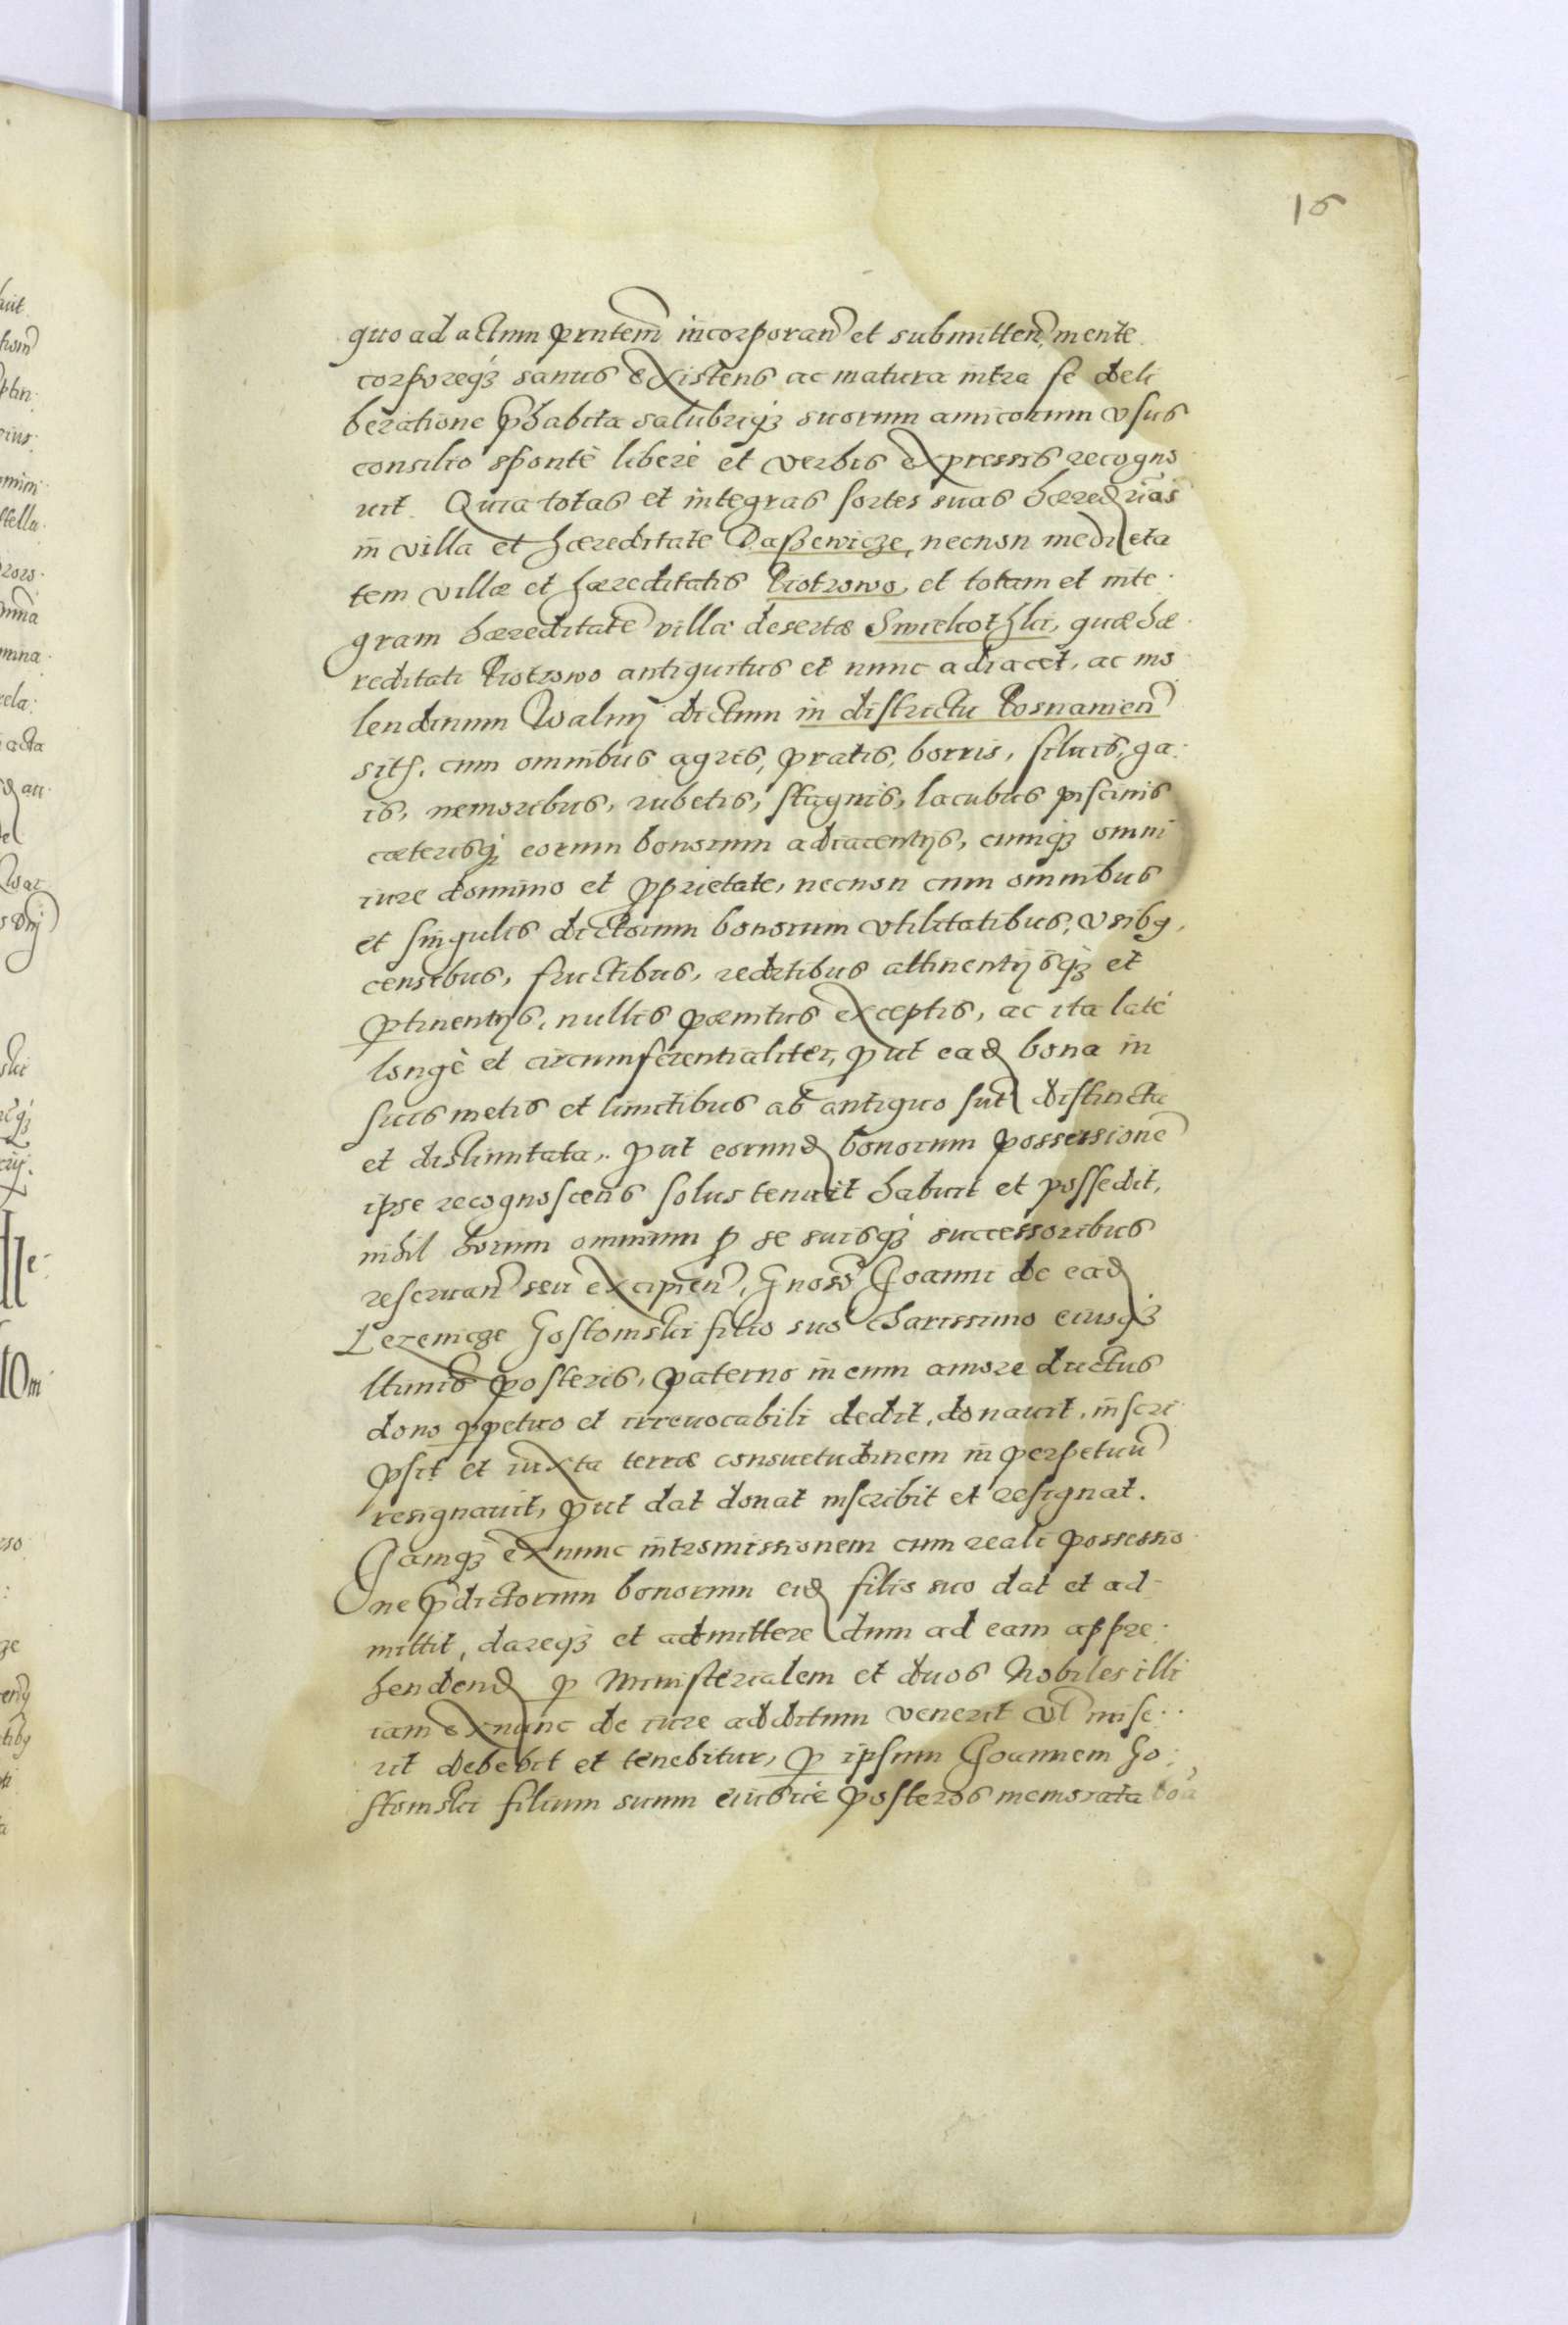 16
quo ad actum prntem incorporan et submitten, mente
corporeq; sanus existens ac matura intra se deli
beratione phabita salubriq; suorum amicorum vsus
consilio spontè liberè et verbis expressis recogno
uit. Quia totas et integras sortes suas hæredrias
in villa et hæreditate Daßewicze, necnon medieta
tem villæ et hæreditatis Piotrowo, et totam et inte
gram hæreditate villæ desertæ quæ hæ
reditati Piotrowo antiquitus et nunc adiacet, ac mo
lendinum Walny dictum in districtu Posnanien
sit. cum omnibus agris, pratis, borris, siluis, ga
is, nemoribus, rubetis, stagnis, lacubus piscinis
cæterisq; eorum bonorum adiacentijs, cumq; omni
iure dominio et pprietate, necnon cum omnibus
et singulis dictorum bonorum vtilitatibus, vsibq,
censibus, fructibus, reditibus attinentijsq; et
ptinentijs, nullis pænitus exceptis, ac ita latè
longè et circumferentialiter, put ead bona in
suis metis et limitibus ab antiquo sut distincta
et dislimitata, put eorund bonorum possessione
ipse recognoscens solus tenuit habuit et possedit,
nihil horum omnium p se suisq; successoribus
reseruan seu excipien, Gnoso Joanni de ead
Lezenicze Gostomski filio suo charissimo eiusq;
ltimis posteris, paterno in eum amore ductus
dono ppetuo et irreuocabili dedit, donauit, inscri
psit et iuxta terræ consuetudinem in perpetuu
resignauit, put dat donat inscribit et resignat.
Jamq; ex nunc intromissionem cum reali possessio
ne pdictorum bonorum eid filio suo dat et ad
mittit, dareq; et admittere dum ad eam appre
hendend p Ministerialem et duos Nobiles illi
iam ex nunc de iure additum venerit vl mise
rit debebit et tenebitur, p ipsum Joannem Go
stomski filium suum eiusue posteros memorata boa